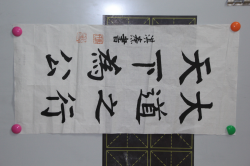 大道之行
天下為公
書